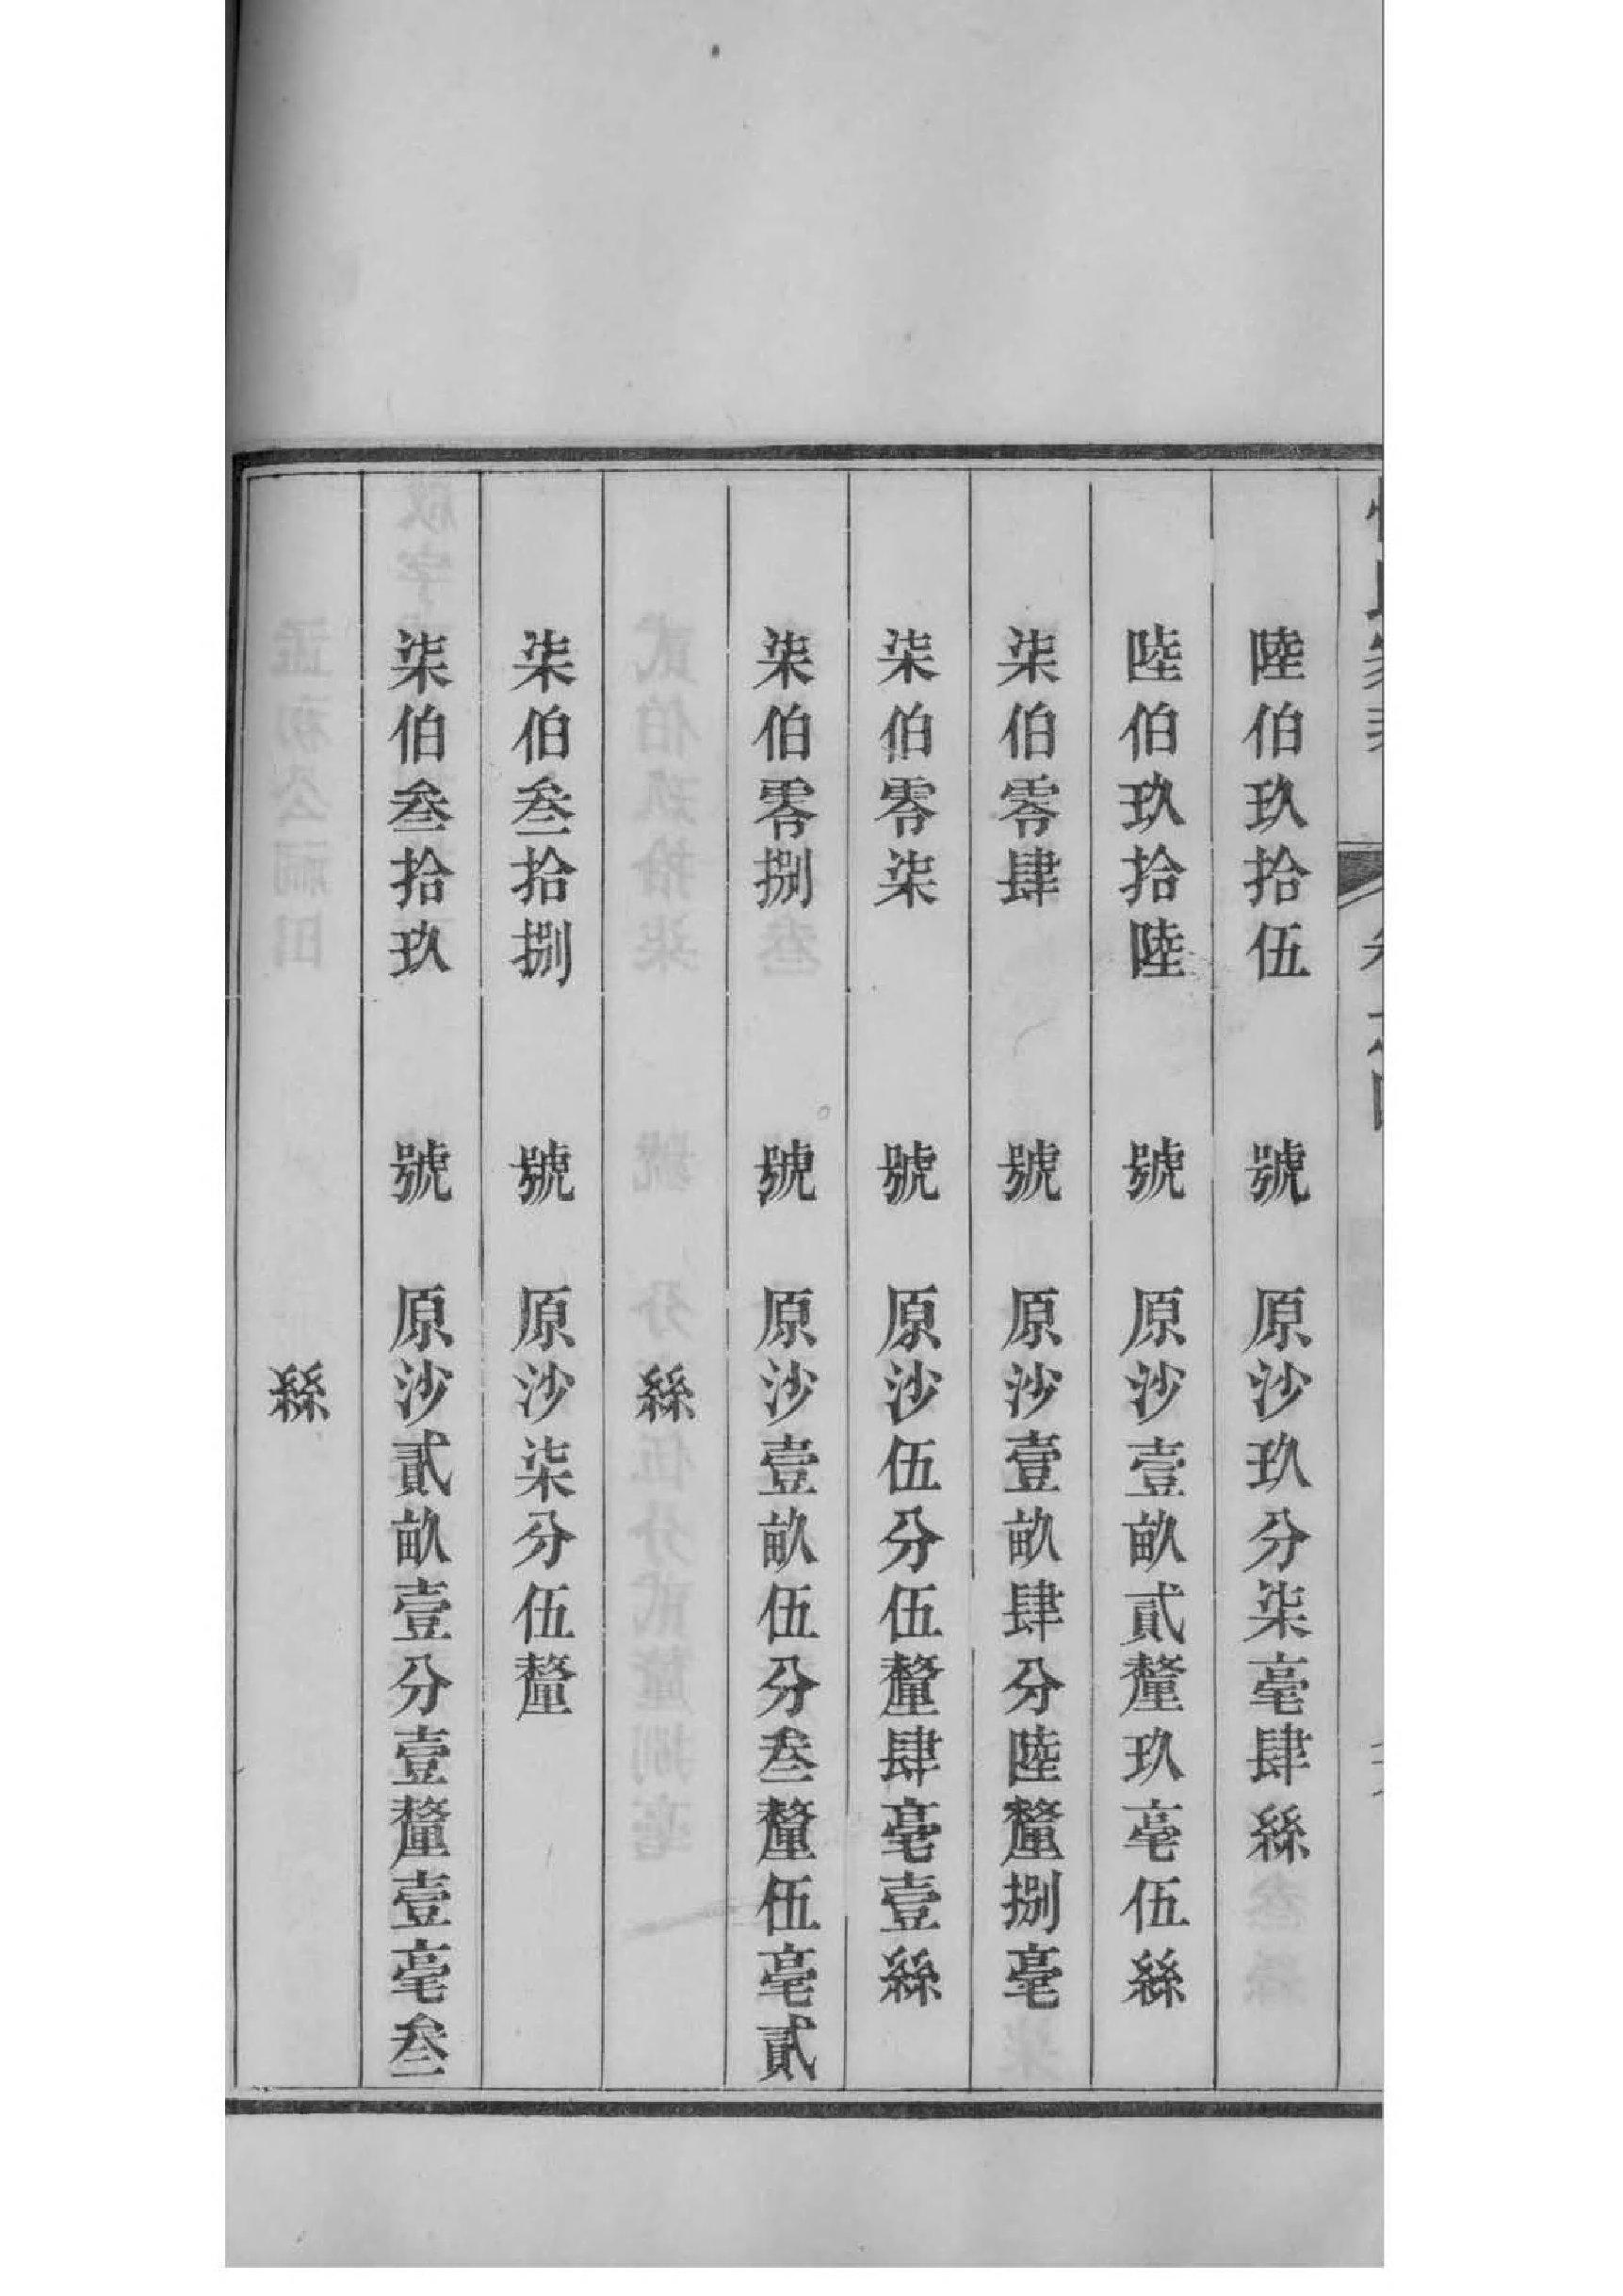 陸伯玖拾伍　號　原沙玖分柒毫肆絲
陸伯玖拾陸　號　原沙壹畝貳釐玖毫伍絲
柒伯零肆　號　原沙壹畝肆分陸釐捌毫
柒伯零柒　號　原沙伍分伍釐肆毫壹絲
柒伯零捌　號　原沙壹畝伍分叁釐伍毫貳
絲
柒伯叁拾捌　號　原沙柒分伍釐
柒伯叁拾玖　號　原沙貳畝壹分壹釐壹毫叁
絲